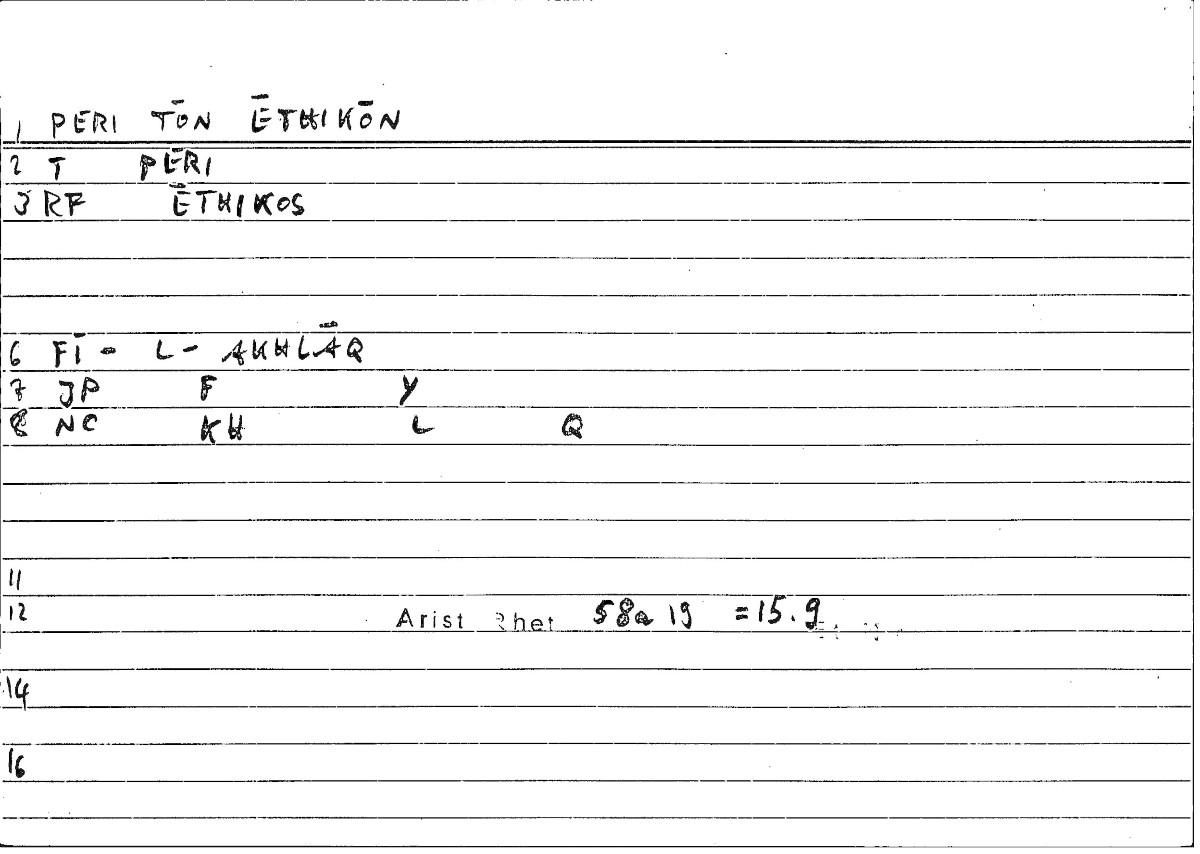 1 PERI TŌN ĒTHIKŌN
2 T PERI
3 RF ĒTHIKOS
6 FĪ - L - AKHLĀQ
7 JP F Y
8 NC KH L Q
11
12 Arist Rhet 58a 19 = 15.9
14
16